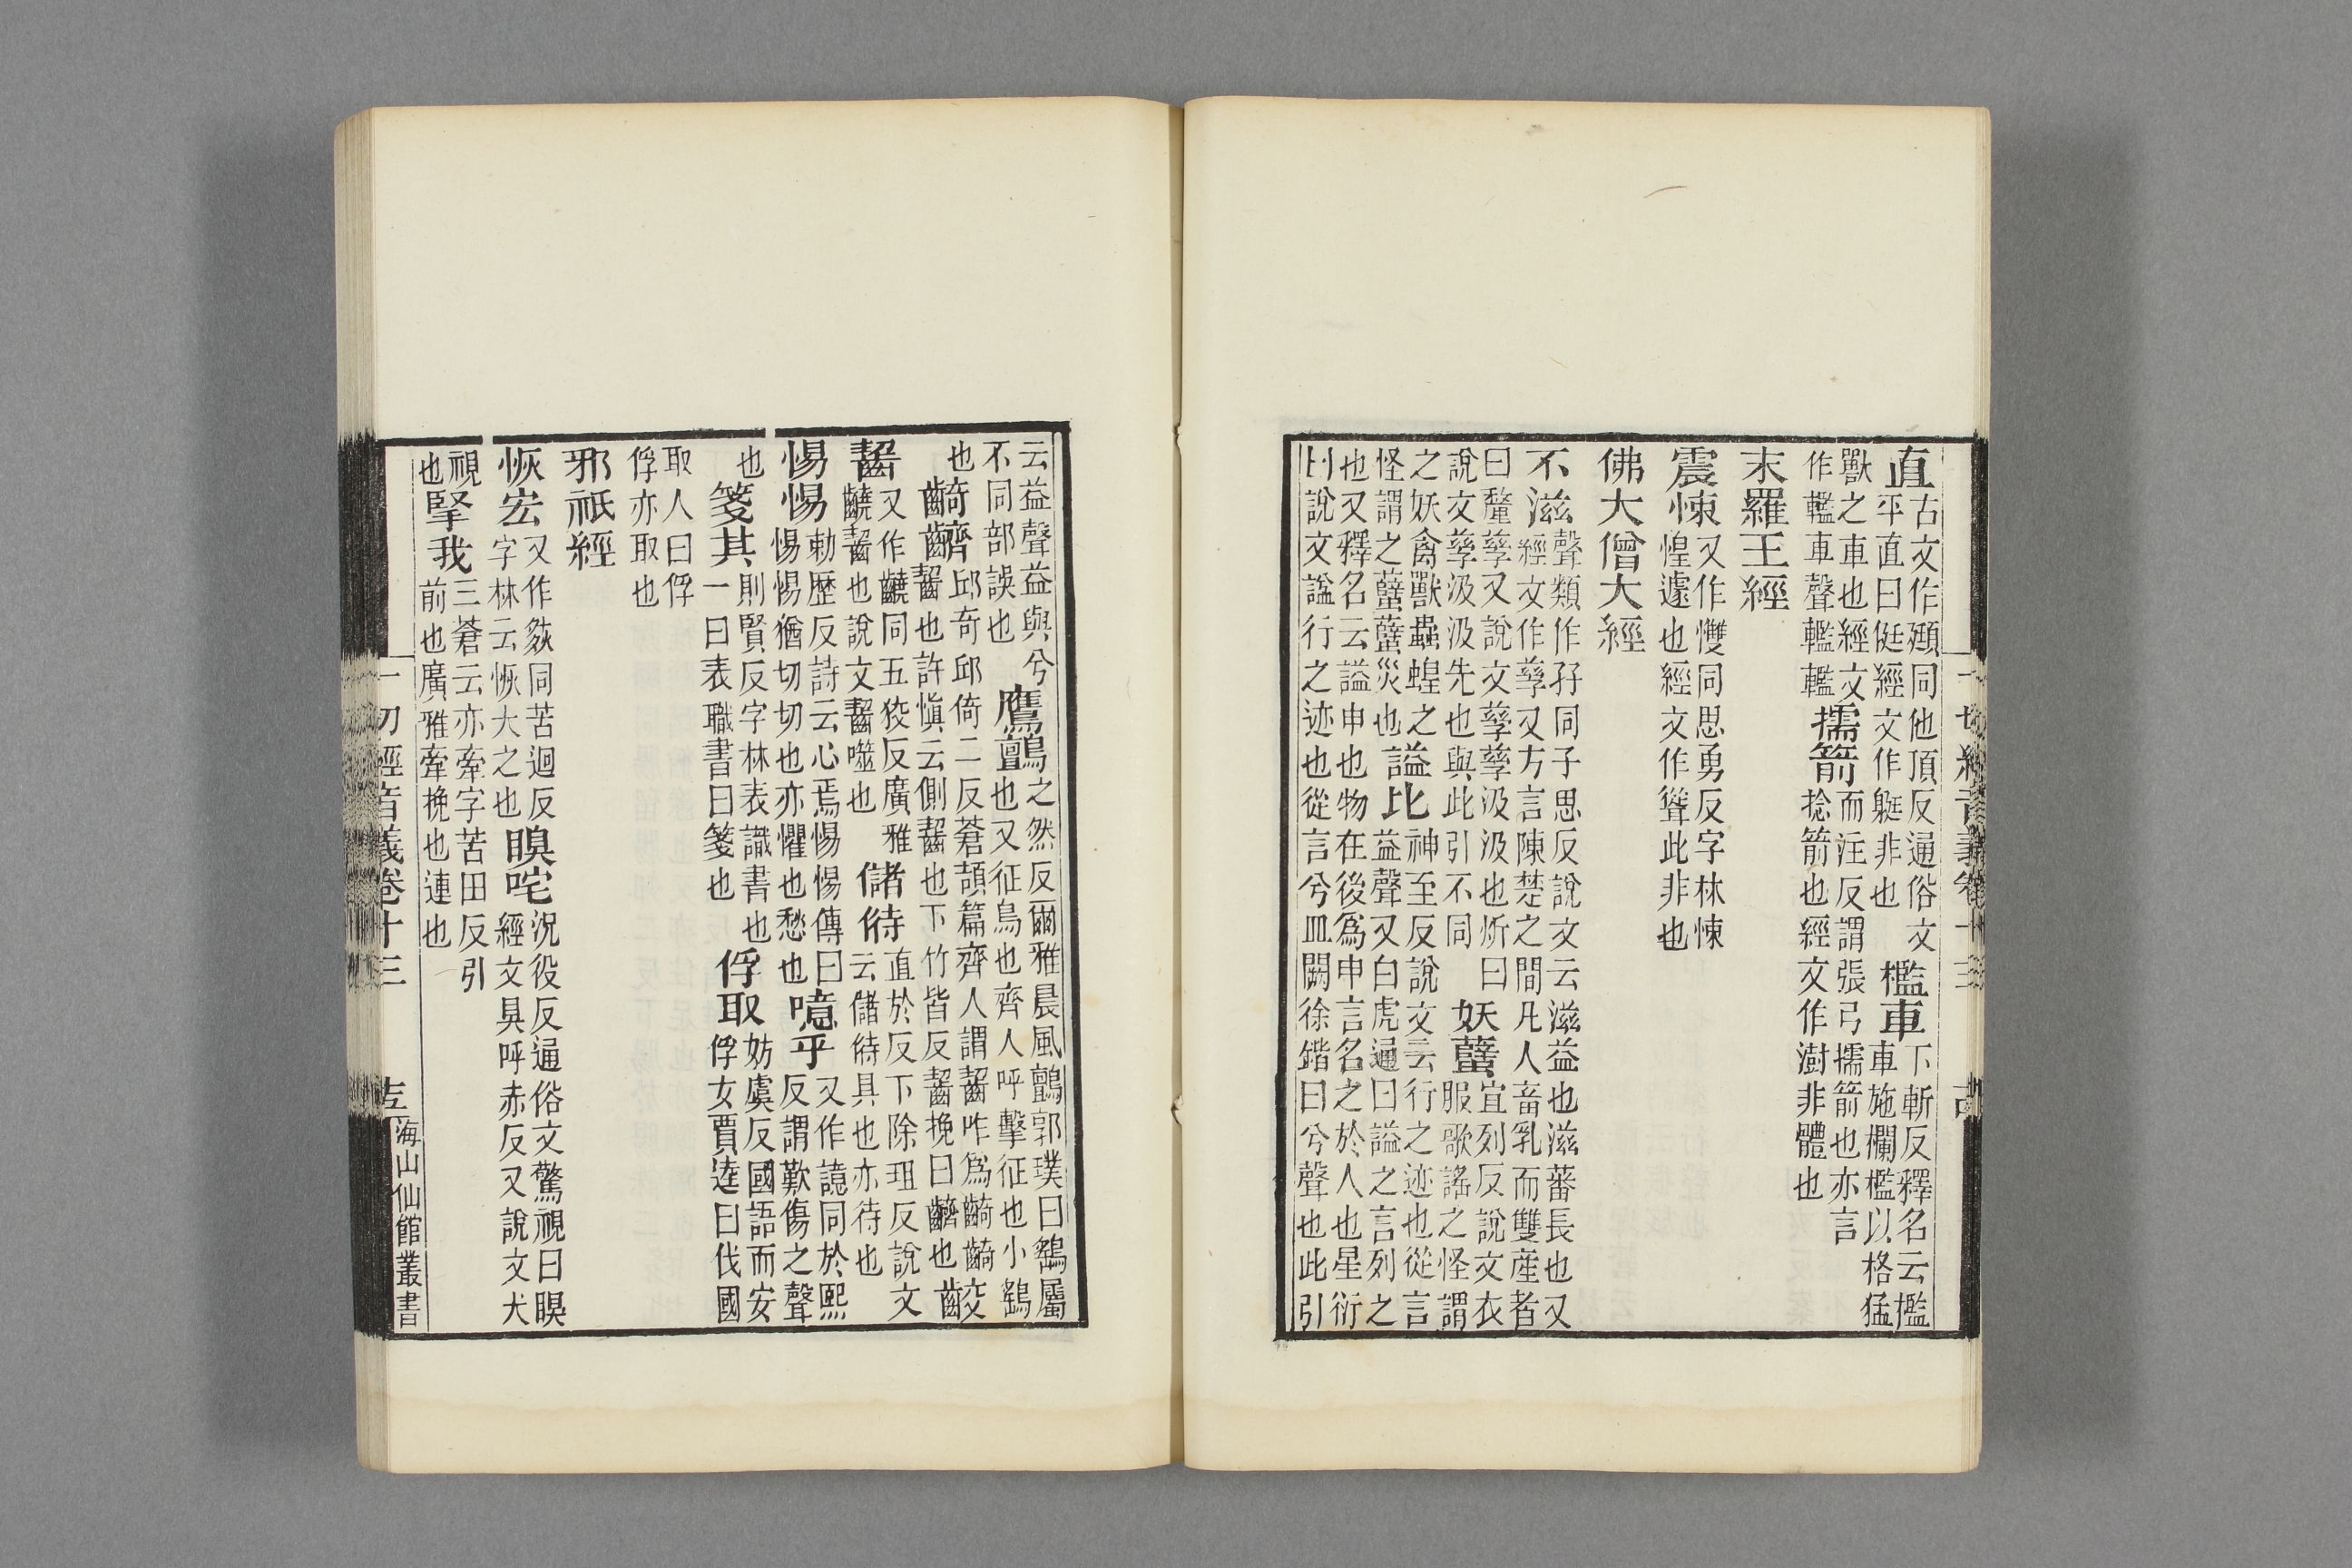 直古文作頲同他頂反通俗文平直曰侹經文作艇非也檻車下斬反釋名云檻車施欄檻以格猛
獸之車也經文作轞車聲轞轞擩箭而注反謂張弓擩箭也亦言捻箭也經文作澍非體也
末羅王經
震悚又作㩳同思勇反字林悚惶遽也經文作聳此非也
佛大僧大經
不滋聲類作孖同子思反說文云滋益也滋蕃長也又經文作孳又方言陳楚之間凡人畜乳而雙產者
曰釐孳又說文孳孳汲汲也炘曰說文孳汲汲先也與此引不同妖蠥宜列反說文衣服歌謠之怪謂
之妖禽獸蟲蝗之怪謂之蠥蠥災也謚比神至反說文云行之迹也從言益聲又白虎通曰謚之言列之
也又釋名云謚申也物在後爲申言名之於人也星衍曰說文謚行之迹也從言兮皿闕徐鍇曰兮聲也此引
云益聲益與兮不同部誤也鷹鸇之然反爾雅晨風鸇郭璞曰鷂屬也又征鳥也齊人呼擊征也小鷂
也齮齊齧邱奇邱倚二反蒼頡篇齊人謂齧咋爲齮齮齩齧也許愼云側齧也下竹皆反齧挽曰齇也齒
齧又作齾同五狡反廣雅齩齧也說文齧噬也儲偫直於反下除珇反說文云儲偫具也亦待也
惕惕勅歷反詩云心焉惕惕傳曰惕惕猶切切也亦懼也愁也噫乎又作譩同於熙反謂歎傷之聲
也箋其則賢反字林表識書也一曰表職書曰箋也俘取妨虞反國語而安俘女賈逵曰伐國
取人曰俘俘亦取也
邪祇經
恢宏又作㷇同苦迴反字林云恢大之也瞁咤況役反通俗文驚視曰瞁經文㚖呼赤反又說文犬
視也掔我三蒼云亦牽字苦田反引前也廣雅牽挽也連也
一切經音義卷十三
海山仙館叢書